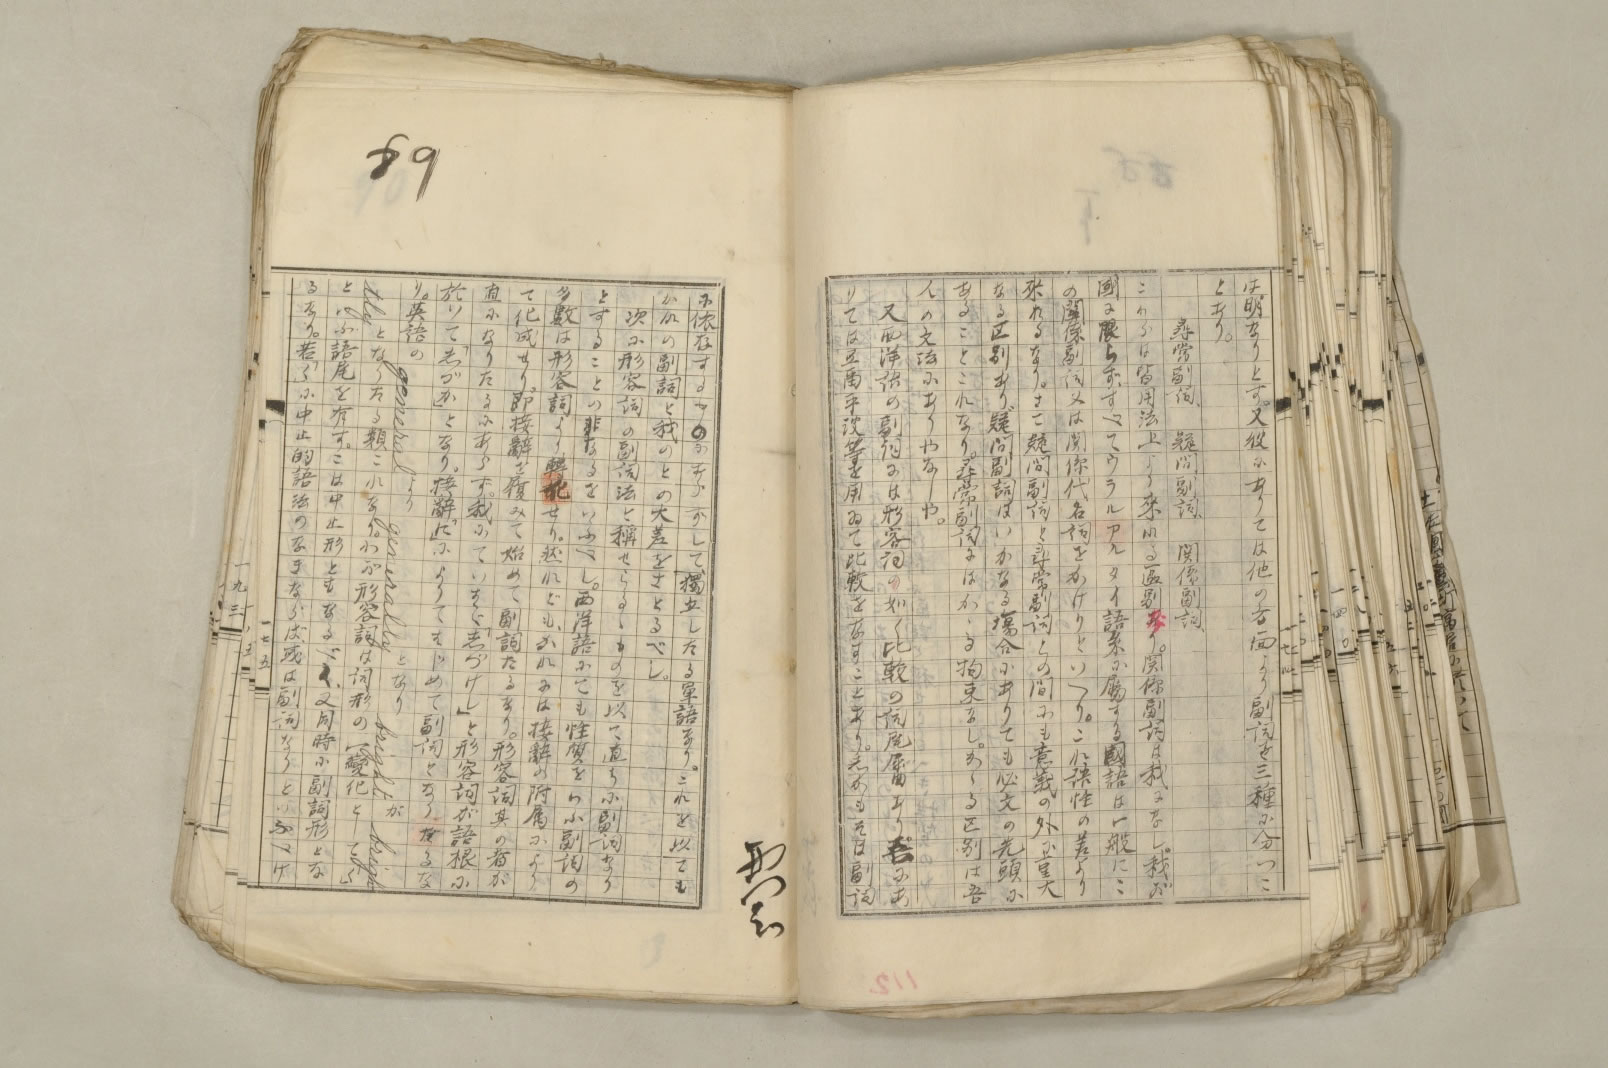 は明なりとす。又彼にありては他の方面より副詞を三種に分つこ
とあり。
尋常副詞、疑問副詞、関係副詞
これらは皆用法上より来れる区別なり。関係副詞は我になし。我が
國に限らず、すべてウラルアルタイ語系に属する國語は一般にこ
の関係副詞又は関係代名詞をかけりといへり。これ語性の差より
来れるなり。さて疑問副詞と尋常副詞との間にも意義の外に重大
なる区別あり、疑問副詞はいかなる場合にありても必文の先頭に
あることこれなり。尋常副詞にはかゝる拘束なし。かゝる区別は吾
人の文法にありやなしや。
又西洋語の副詞には形容詞の如く比較の詞尾屈曲あり、吾にあ
りては
比較をなすことあり。しかもそは副詞
に依存するものにあらずして、獨立したる單語なり。これを以ても
かれの副詞と我のとの大差をさとるべし。
次に形容詞の副詞法と稱せらるゝものを以て直ちに副詞なり
とすることの非なるをいふべし。西洋語にても性質をいふ副詞の
多數は形容詞より轉化せり。然れども、かれには接辭の附属により
て化成せり。即接辭を履みて始めて副詞たるなり。形容詞其の者が
直になりたるにあらず。我にていはゞ「しづけし」と形容詞が語根に
於いて「しづか」となり、接辭「に」によりてはじめて副詞となり たるな
り。英語の general より generally となり bright が brigh
tly となりたる類これなり。わが形容詞は詞形の變化として「く」
といふ語尾を有す。こは中止形ともなるべく、又同時に副詞形とな
るなり。若「く」に中止的語法のなきならば或は副詞なりといふべけ
89
112
一九三
一七五